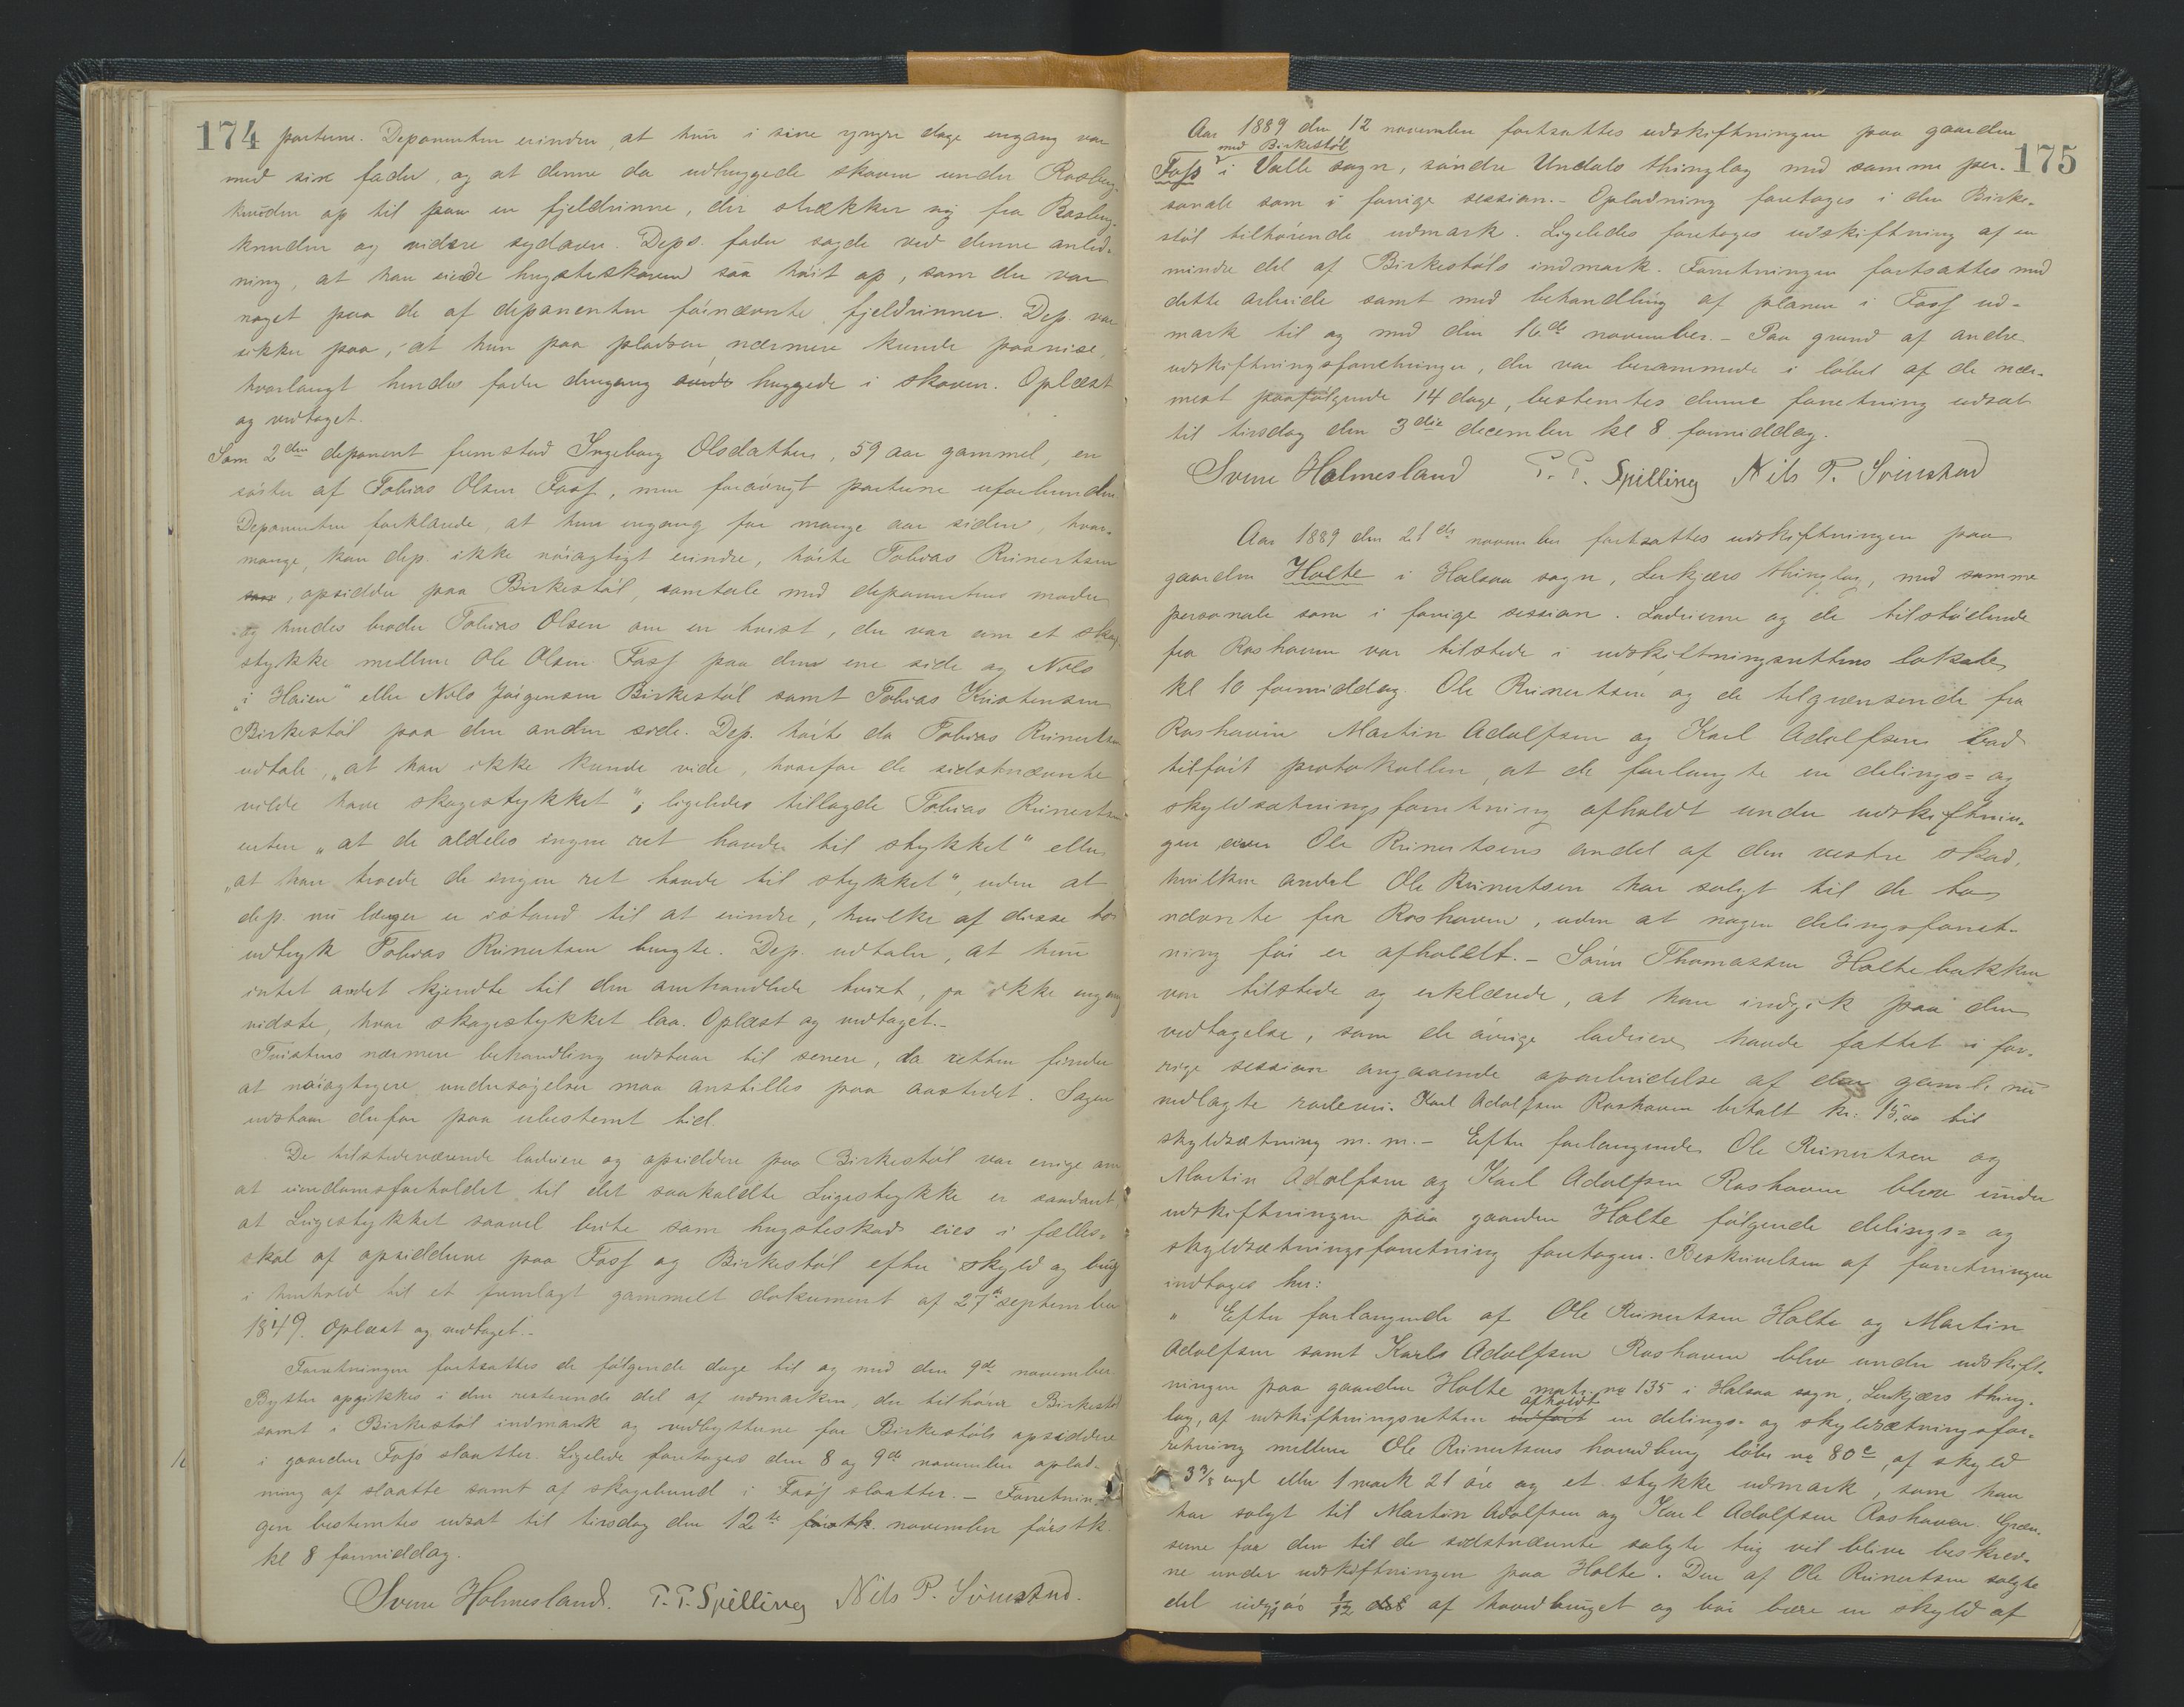 174
parterne. Deponenten erindrer, at hun i sine yngre dage engang var
med sin fader, og at denne da udhuggede skoven under Rosberg-
knuden op til paa en fjeldrinne, der strækker sig fra Rasberg-
knuden og videre sydover. Deps. fader sagde ved denne anled-
ning, at han eiede hugsterskoven saa høit op, som der var
noget paa de af deponenten førnævnte fjeldrinner. Dep. var
sikker paa, at hun paa pladsen nærmere kunde paavise,
hvorlangt hendes fader dengang huggede i skoven. Oplæst
og vedtaget.
Som 2den deponent fremstod Ingeborg Olsdatter, 59 aar gammel, en
søster af Tobias Olsen Foss, men forøvrigt parterne uforbunden
Deponenten forklarede, at hun engang for mange aar siden, hvor-
mange, kan dep. ikke nøiagtigt erindre, hørte Tobias Reinertsen
opsidder paa Birkestøl, samtale med deponentens moder
og hendes broder Tobias Olsen om en tvist, der var om et skog-
stykke mellem Ole Olsen Foss paa den ene side og Nils
"i Haien" eller Nils Jørgensen Birkestøl samt Tobias Kristensen
Birkestøl paa den anden side. Dep. hørte da Tobias Reinertsen
udtale, "at han ikke kunde vide, hvorfor de sidstnævnte
vilde have skogstykket"; ligeledes tillagde Tobias Reinertsen
enten "at de aldeles ingen ret havde til stykket" eller
"at han troede de ingen ret havde til stykket", uden at
dep. nu længer er istand til at erindre, hvilke af disse to
udtryk Tobias Reinertsen brugte. Dep. udtaler, at hun
intet andet kjendte til den omhandlede tvist, ja ikke engang
vidste, hvor skogestykket laa. Oplæst og vedtaget.-
Tvistens nærmere behandling udstaar til senere, da retten finder
at nøiagtigere undersøgelser maa anstilles paa aastedet. Sagen
udstaar derfor paa ubestemt tid.
De tilstedeværende lodeiere og opsiddere paa Birkestøl var enige om
at eiendomsforholdet til det saakaldte Leigestykke er saadant,
at Leigestykket saavel beite som hugsterskov eies i fælles-
skab af opsidderne paa Foss og Birkestøl efter skyld og brug
i henhold til et fremlagt gammelt dokument af 27de september
1849. Oplæst og vedtaget.-
Forretningen fortsattes de følgende dage til og med den 9de november
Bytter opgikkes i den resterende del af udmarken, der tilhører Birkestøl
samt i Birkestøl indmark og vedbytterne for Birkestøls opsiddere
i gaarden Foss slaatter. Ligelede foretoges den 8 og 9de november oplod-
ning af slaatte samt af skogebund i Foss slaatter. - Forretnin-
gen bestemtes udsat til tirsdag den 12te november førstk.
kl 8 formiddag.
Sven Holmesland. T. T. Spilling Nils P. Svinstad.
175
Aar 1889 den 12 november fortsattes udskiftningen paa gaarden
med Birkestøl
Foss i Valle sogn, søndre Undals thinglag med samme per-
sonale som i forrige session. - Oplodning foretoges i den Birke-
støl tilhørende udmark. Ligeledes foretoges udskiftning af en
mindre del af Birkestøls indmark. Forretningen fortsattes med
dette arbeide samt med behandling af planen i Foss ud-
mark til og med den 16de november. - Paa grund af andre
udskiftningsforretninger, der var berammede i løbet af de nær-
mest paafølgende 14 dage, bestemtes denne forretning udsat
til tirsdag den 3die december kl 8 formiddag.
Sven Holmesland T. T. Spilling Nils P. Svinstad
Aar 1889 den 21de november fortsattes udskiftningen paa
gaarden Holte i Halsaa sogn, Lerkjærs thinglag, med samme
personale som i forrige session. Lodeierne og de tilstødende
fra Roshaven var tilstede i udskiftningsrettens lokale
kl 10 formiddag. Ole Reinertsen og de tilgrænsende fra
Roshaven Martin Adolfsen og Karl Adolfsen bad
tilført protokollen, at de forlangte en delings= og
skyldsætningsforretning afholdt under udskiftnin-
gen over Ole Reinertsens andel af den vestre skov,
hvilken andel Ole Reinertsen har solgt til de to
nævnte fra Roshaven, uden at nogen delingsforret-
ning før er afholdt. - Søren Thomassen Holtebakken
var tilstede og erklærede, at han indgik paa den
vedtagelse, som de øvrige lodeiere havde fattet i for-
rige session angaaende oparbeidelse af den gamle nu
nedlagte rodevei. Karl Adolfsen Roshaven betalt kr: 15,00 til
skyldsætning m. m. - Efter forlangende Ole Reinertsen og
Martin Adolfsen og Karl Adolfsen Roshaven blev under
udskiftningen paa gaarden Holte følgende delings= og
skyldsætningsforretning foretagen. Beskrivelsen af forretningen
indtages her:
" Efter forlangende af Ole Reinertsen Holte og Martin
Adolfsen samt Karls Adolfsen Roshaven blev under udskift-
ningen paa gaarden Holte matr. no 135 i Halsaa sogn, Lerkjærs thing-
afholdt
lag, af udskiftningsretten indført en delings- og skyldsætningsfor-
retning mellem Ole Reinertsens hovedbrug løbe no 80c, af skyld
3 3/8 engl eller 1 mark 21 øre og et stykke udmark, som han
har solgt til Martin Adolfsen og Karl Adolfsen Roshaven. Græn-
serne for den til de sidstnævnte solgte teig vil blive beskrev-
ne under udskiftningen paa Holte. Den af Ole Reinertsen solgte
del udgjør 1/12 del af hovedbruget og bør bære en skyld af